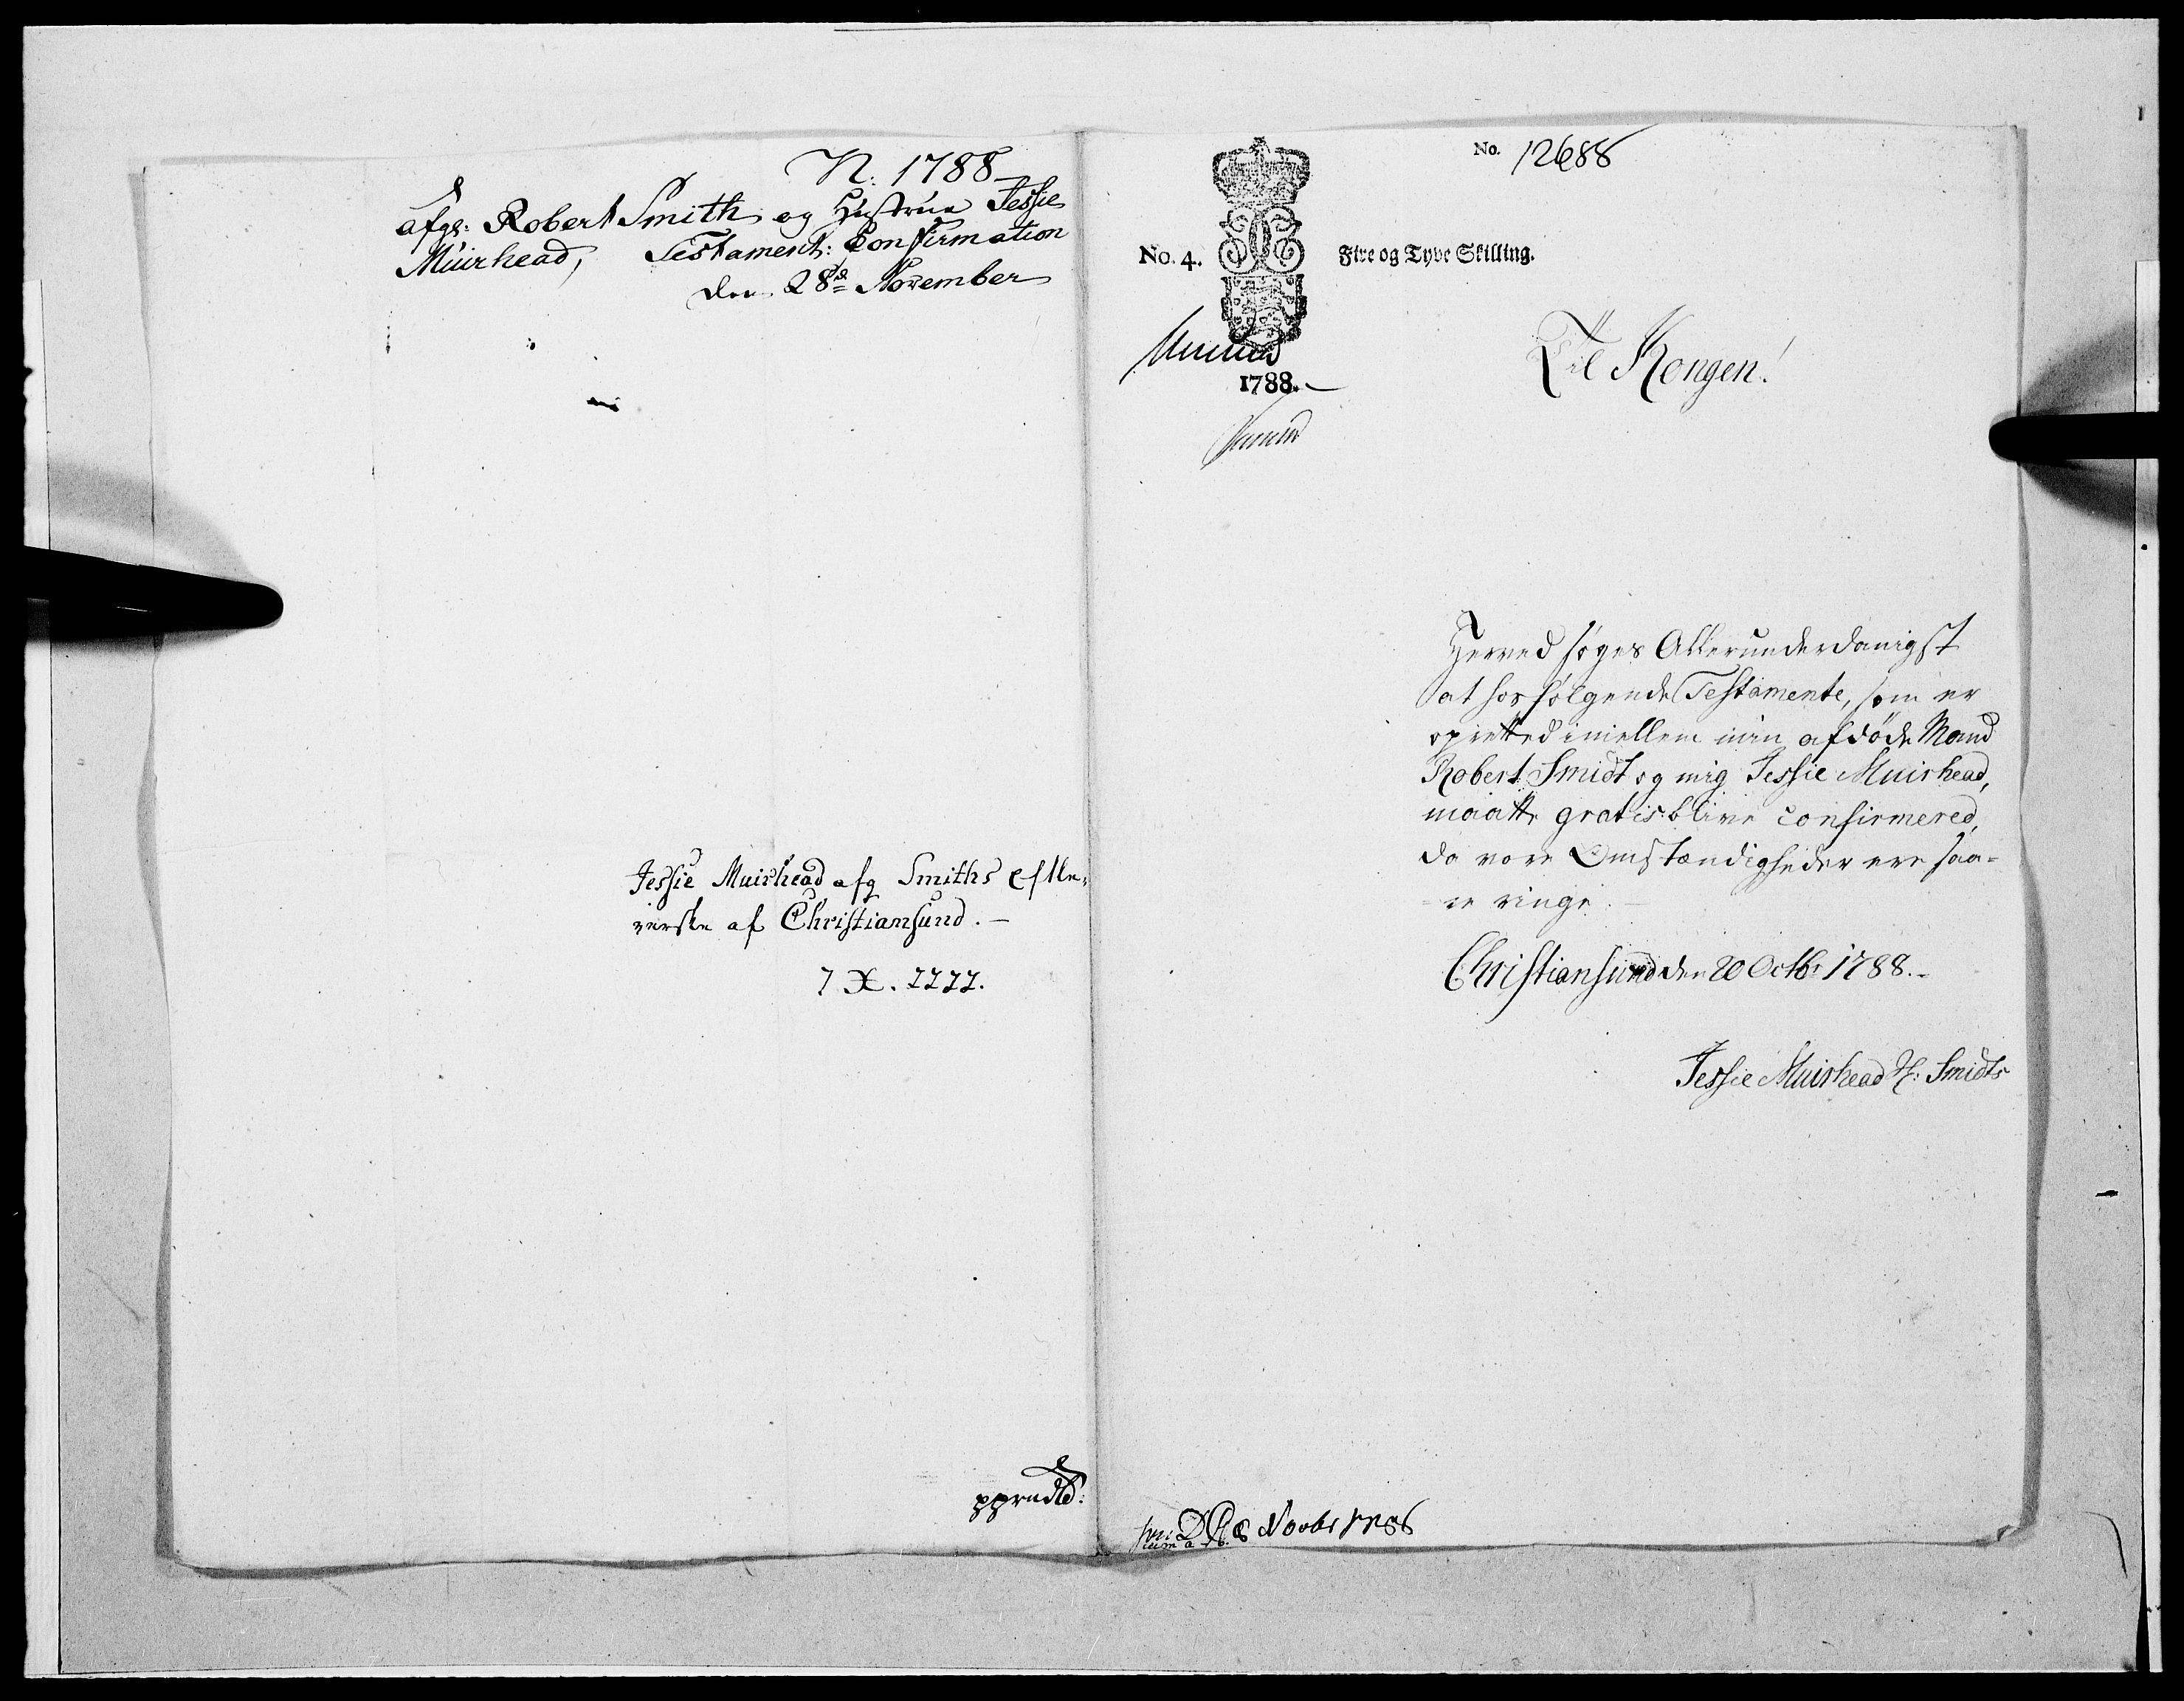 N: 1788
afg: Robert Smith og Hustrue Jessie
Muirhead, Testament: Confirmation
den 28de November
Jessie Muirhead afg Smiths Efterle,
verske af Christiansund.
ppmdtd:
No. 12688
No. 4. Fire og Tyve Skilling.
1788.
Til Kongen!
Herved søges Allerunderdanigst
at hosfølgende Testamente, som er
opretted imellem min afdøde Mand
Robert Smidt og mig Jessie Muirhead,
maatte gratis blive confirmered,
da vore Omstændigheder ere saa=
=re ringe.
Christiansund den 20 Octbr 1788.
Jessie Muirhead Sl: Smidts